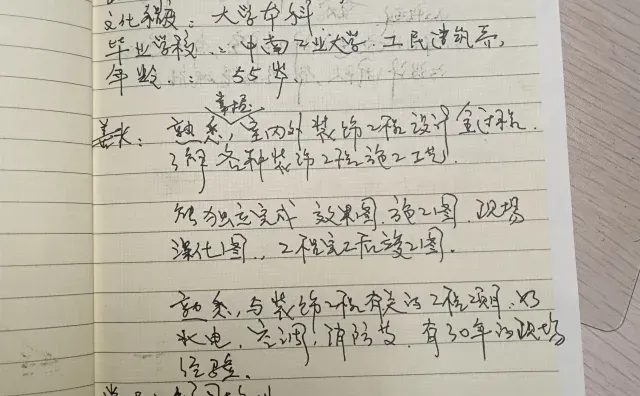 文化程度：大学本科
毕业学校：中南工业大学．工民建筑系，
年龄：55岁
掌握
熟悉，室内外装饰工程设计全过程．
了解各种装饰工程施工工艺．
能独立完成效果图．施工图．现场
深化图．．工程完工后竣工图．
熟悉，与装饰工程有关的工程项目．如
水电．空调．消防等．有30年的现场
经验